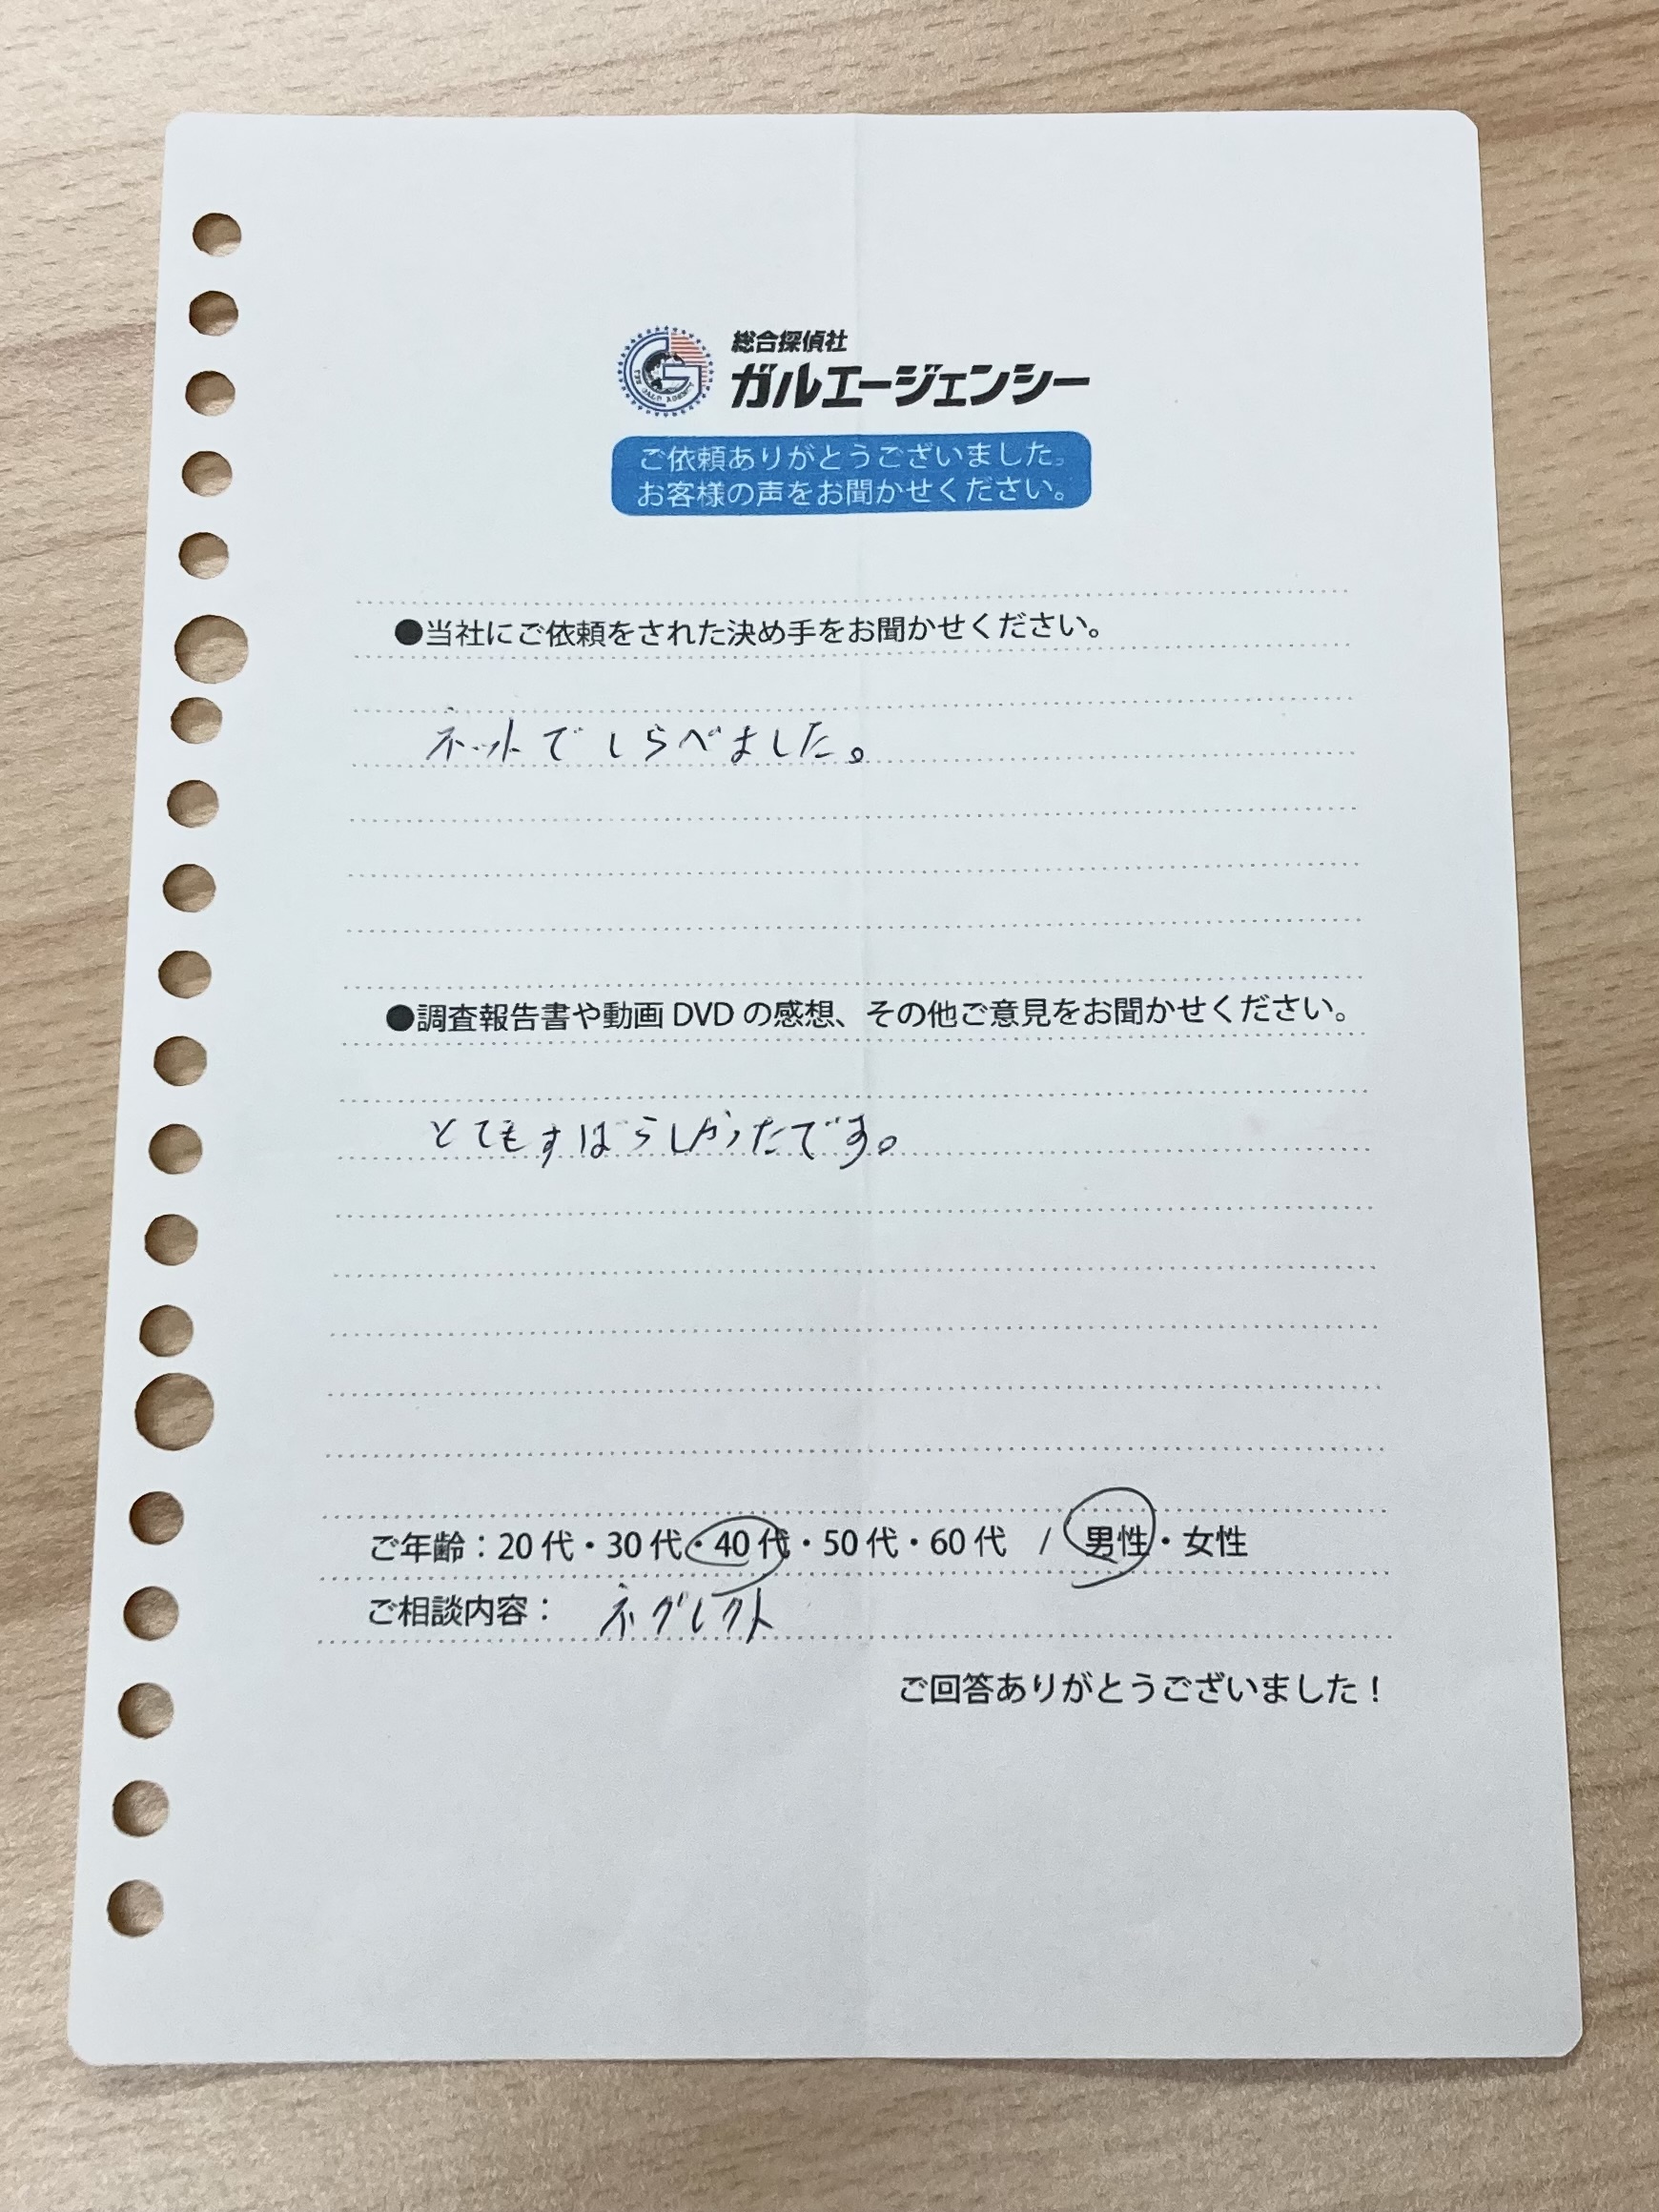 総合探偵社
ガルエージェンシー
ご依頼ありがとうございました。
お客様の声をお聞かせください。
●当社にご依頼をされた決め手をお聞かせください。
ネットでしらべました。
●調査報告書や動画DVDの感想、その他ご意見をお聞かせください。
とてもすばらしかったです。
ご年齢：20代・30代・40代・50代・60代 / 男性・女性
ご相談内容： ネグレクト
ご回答ありがとうございました！